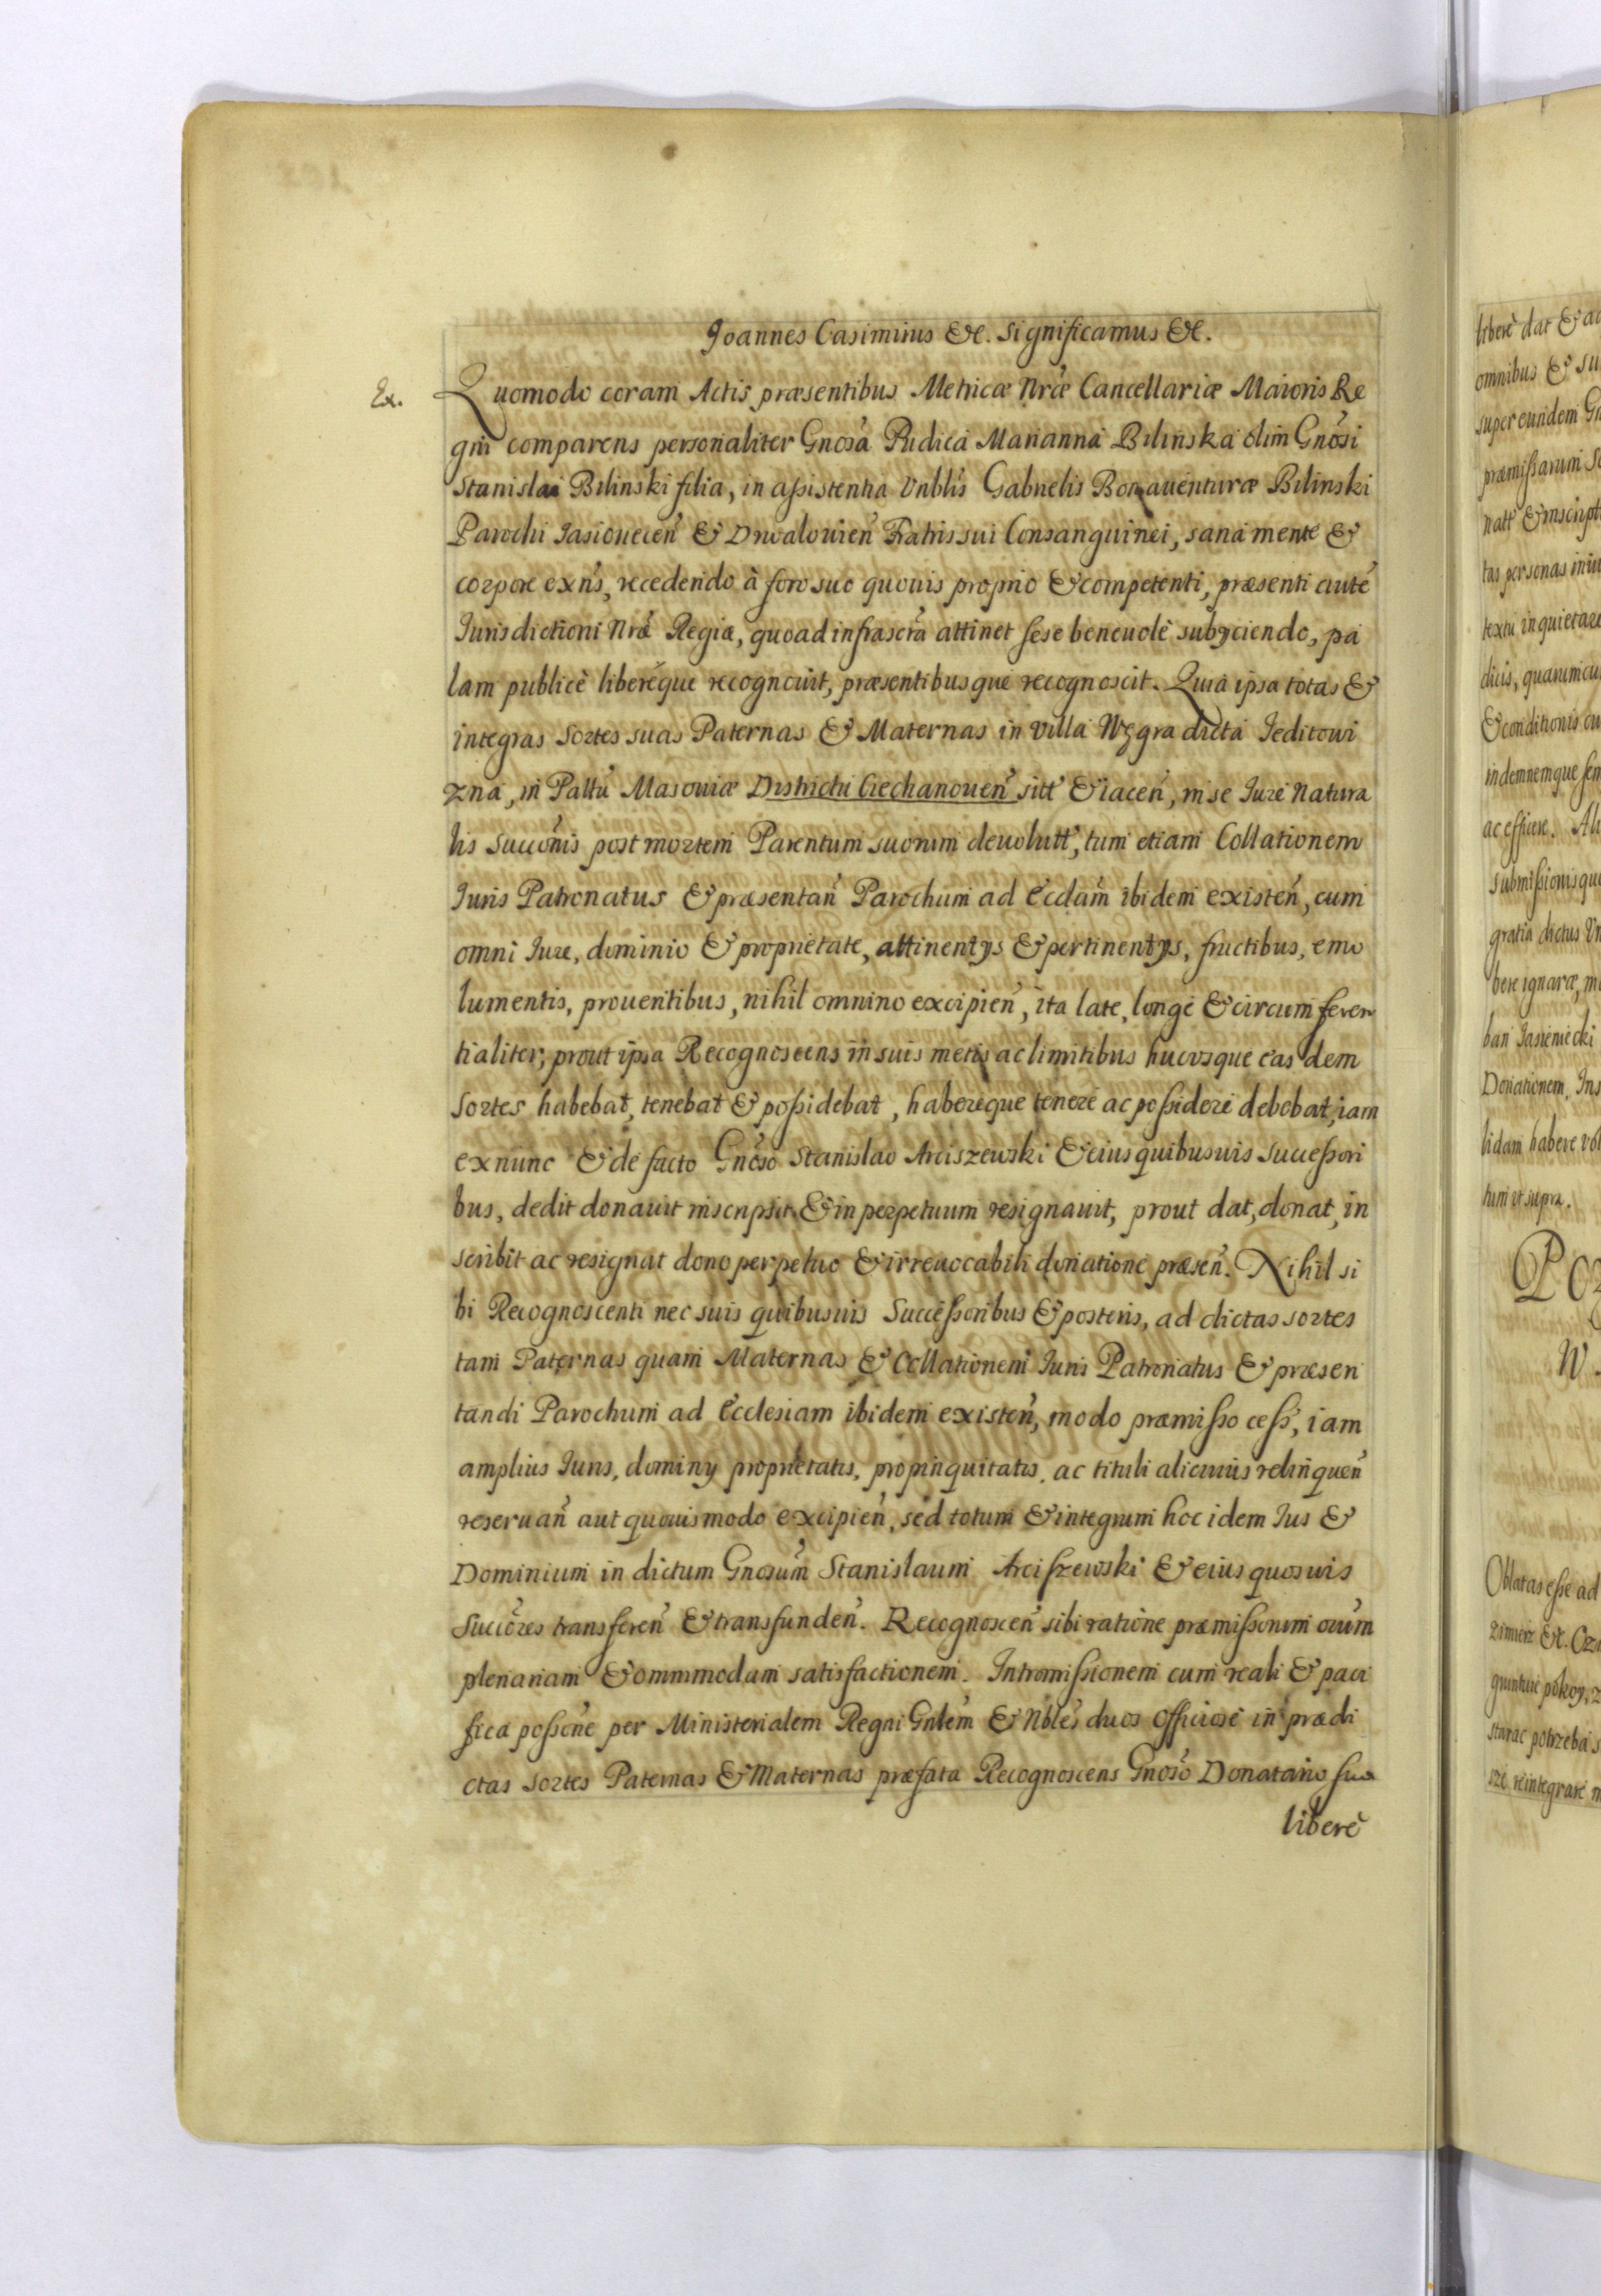 Joannes Casimirus &c. Significamus &c.
Ex. Quomodo coram Actis præsentibus Metricæ Nrǽ Cancellariæ Maioris Re
gni comparens personaliter Gnosá Pudica Marianna Bilinska olim Gnósi
Stanislai Bilinski filia, in aßistentia Vnblis Gabrielis Bonauenturæ Bilinski
Parochi Jasionecen̄ & Drwalouien̄ Fratris sui Consanguinei, sana mente &
corpore exn̄s, recedendo à foro suo quouis proprio & competenti, præsenti auté
Jurisdictioni Nrǽ Regiæ, quoad infrascrá attinet sese beneuolè subijciendo, pa
lam publicè liberéque recognouit, præsentibusque recognoscit. Quia ipsa totas &
integras Sortes suas Paternas & Maternas in Villa Węgra dicta Jeditowi
zna, in Pallú Masouiæ Districtu Ciechanouen̄ sitt & iacen̄, in se Jure Natura
lis Succónis post mortem Parentum suorum deuolutt, tum etiam Collationem
Juris Patronatus & præsentan̄ Parochum ad Ecclám ibidem existen̄, cum
omni Jure, dominio & proprietate, attinentijs & pertinentijs, fructibus, emo
lumentis, prouentibus, nihil omnino excipien̄, ita late, longe & circumferen
tialiter, prout ipsa Recognoscens in suis metis ac limitibus hucusque eas dem
Sortes habebat, tenebat & poßidebat, habereque tenere ac poßidere debebat, iam
ex nunc & de facto Gnóso Stanislao Arciszewski & eius quibusuis Succeßori
bus, dedit donauit inscripsit & in perpetuum resignauit, prout dat, donat, in
scribit ac resignat dono perpetuo & irreuocabili donatione præsen̄. Nihil si
bi Recognoscenti nec suis quibusuis Succeßoribus & posteris, ad dictas sortes
tam Paternas quam Maternas & Collationem Juris Patronatus & præsen
tandi Parochum ad Ecclesiam ibidem existen̄, modo præmißo ceß, iam
amplius Juris, dominij proprietatis, propinquitatis, ac tituli alicuius relinquen̄
reseruan̄ aut quouis modo excipien̄, sed totum & integrum hoc idem Jus &
Dominium in dictum Gnosúm Stanislaum Arciszewski & eius quosuis
Succóres transferen̄ & transfunden̄. Recognoscen̄ sibi ratione præmißorum oium
plenariam & omnimodam satisfactionem. Intromißionem cum reali & paci
fica poßone per Ministerialem Regni Gnlém & Nbles duos officiose in prædi
ctas sortes Paternas & Maternas præfata Recognoscens Gnosó Donatario suo
liberè
liberè dat & a
omnibus & su
super eundem
præmißarum
natt & inscript
tas personas
textu inquietare
dicis, quarumcu
& conditionis
indemnemque
ac efficere.
submißionis
gratia dictus
bere ignaræ,
ban Jasieniecki
Donationem, Ins
lidam habere
tum vt supra.
Po
W.
Oblatas eße ad
zimierz &c.
pokoy,
starac potrzeba
reintegrare